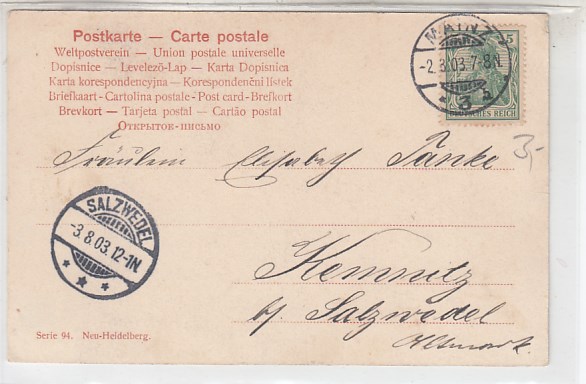 Postkarte — Carte postale
Weltpostverein — Union postale universelle
Dopisnice — Levelező-Lap — Karta Dopisnica
Karta korespondencyjna — Korespondenční lístek
Briefkaart - Cartolina postale - Post card - Brefkort
Brevkort — Tarjeta postal — Cartão postal
Открытое-письмо
MAINZ
-2.8.03.7-8N.
* 3 a
5
DEUTSCHES REICH
3,-
Fräulein Elisabeth Panke
SALZWEDEL
-3.8.03.12-1N.
Kemnitz
b/ Salzwedel
Altmark
Serie 94. Neu-Heidelberg.